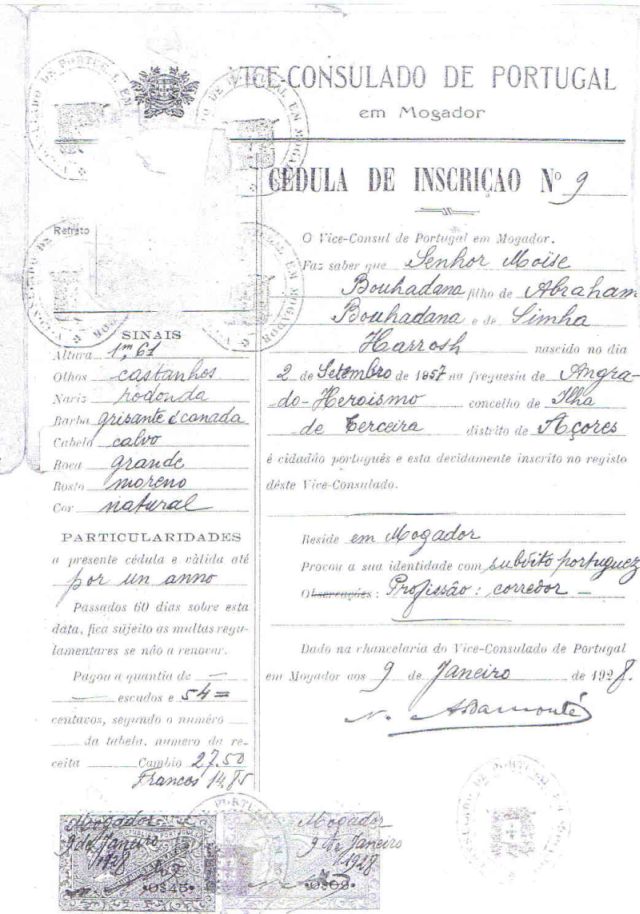 VICE-CONSULADO DE PORTUGAL
em Mogador
CÉDULA DE INSCRIÇÃO Nº 9
Retrato
O Vice-Consul de Portugal em Mogador.
Faz saber que Senhor Moise
Bouhadana filho de Abraham
Bouhadana e de Simha
Harrosh nascido no dia
2 de Setembro de 1857 na freguesia de Angra-
do-Heroismo concelho de Ilha
de Terceira distrito de Açores
é cidadão português e esta devidamente inscrito no registo
dêste Vice-Consulado.
Reside em Mogador
Provou a sua identidade com subdito portuguez
Observações: Profissão: corredor —
Dado na chancelaria do Vice-Consulado de Portugal
em Mogador aos 9 de Janeiro de 1928.
SINAIS
Altura 1m,61
Olhos castanhos
Nariz redonda
Barba grisante
Cabelo calvo
Boca grande
Rosto moreno
Cor natural
PARTICULARIDADES
a presente cédula e válida até
por un anno
Passados 60 dias sobre esta
data, fica sujeito as multas regu-
lamentares se não a renovar.
Pagou a quantia de —
— escudos e 54 =
centavos, segundo o numéro
da tabela, numero da re-
ceita Cambio 27.50
Francos 14.85
Mogador
9 de Janeiro
1928
Mogador
9 de Janeiro
1928
0$09